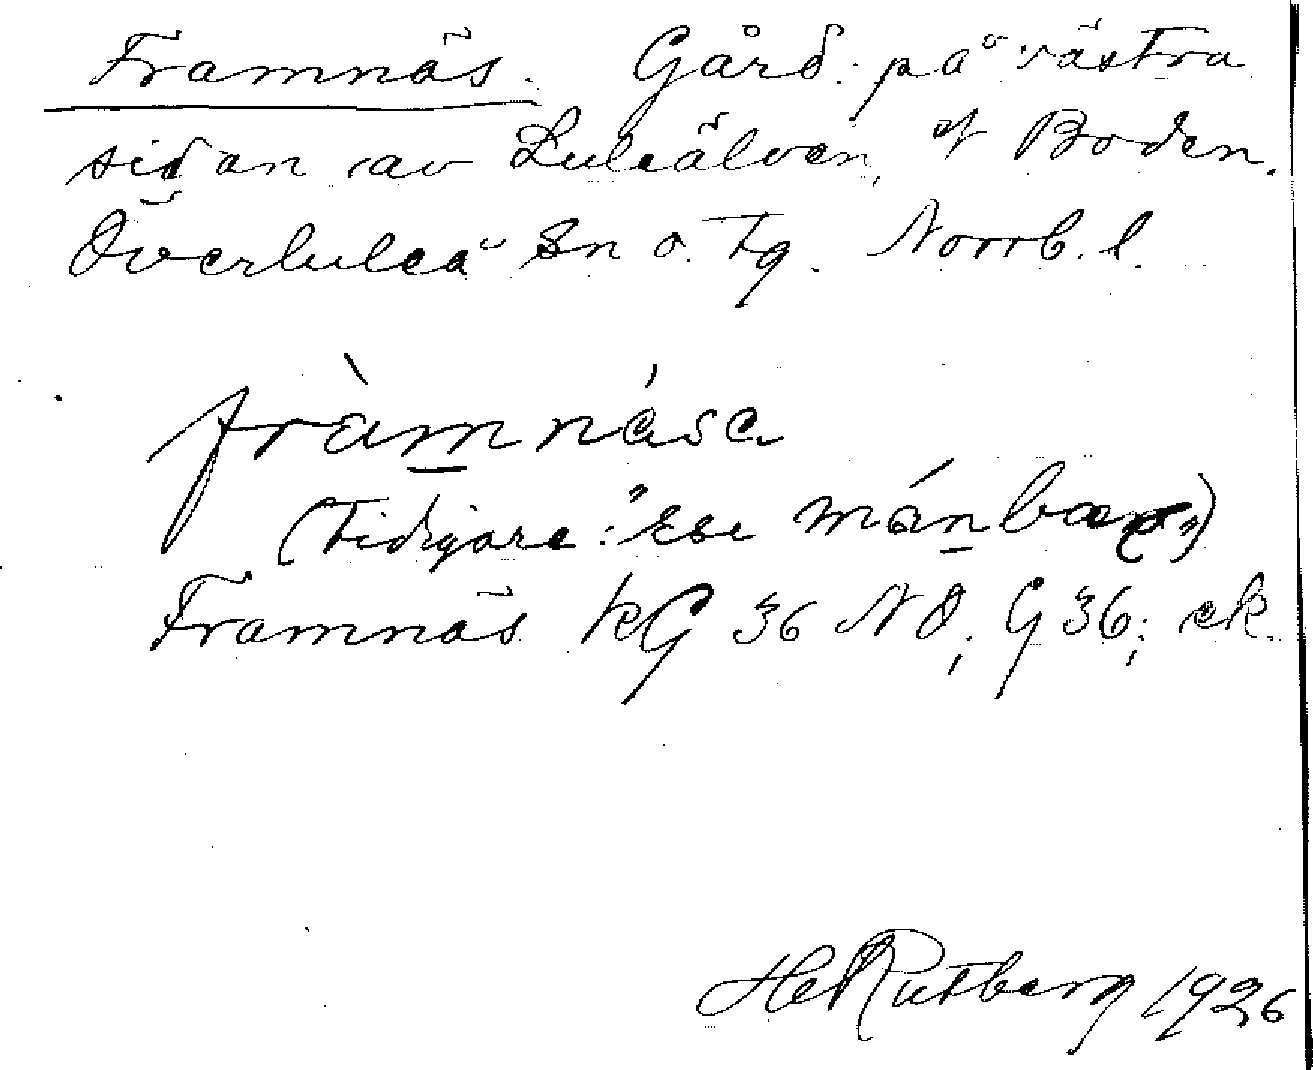 Framnäs. Gård på västra
sidan av Luleälven, Boden.
Överluleå Sn o. Tg. Norrb. l.
fràmnása
(Tidigare:
Framnäs kG 36 NO; G 36; ek.
HelRutberg 1926